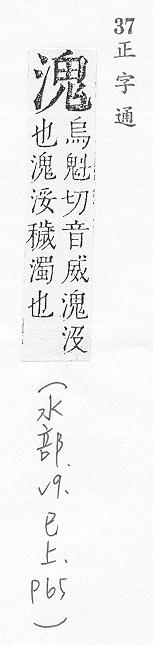 37正字通
溾
烏魁切音威溾沒
也溾浽穢濁也
(水部.v9.巳上.P65)